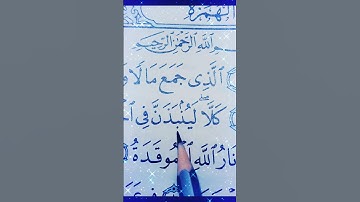 الهُمَزَة
ٱللَّهِ ٱلرَّحْمَٰنِ ٱلرَّحِيمِ
ٱلَّذِى جَمَعَ مَالًا
كَلَّا ۖ لَيُنۢبَذَنَّ فِى
نَارُ ٱللَّهِ ٱلْمُوقَدَةُ